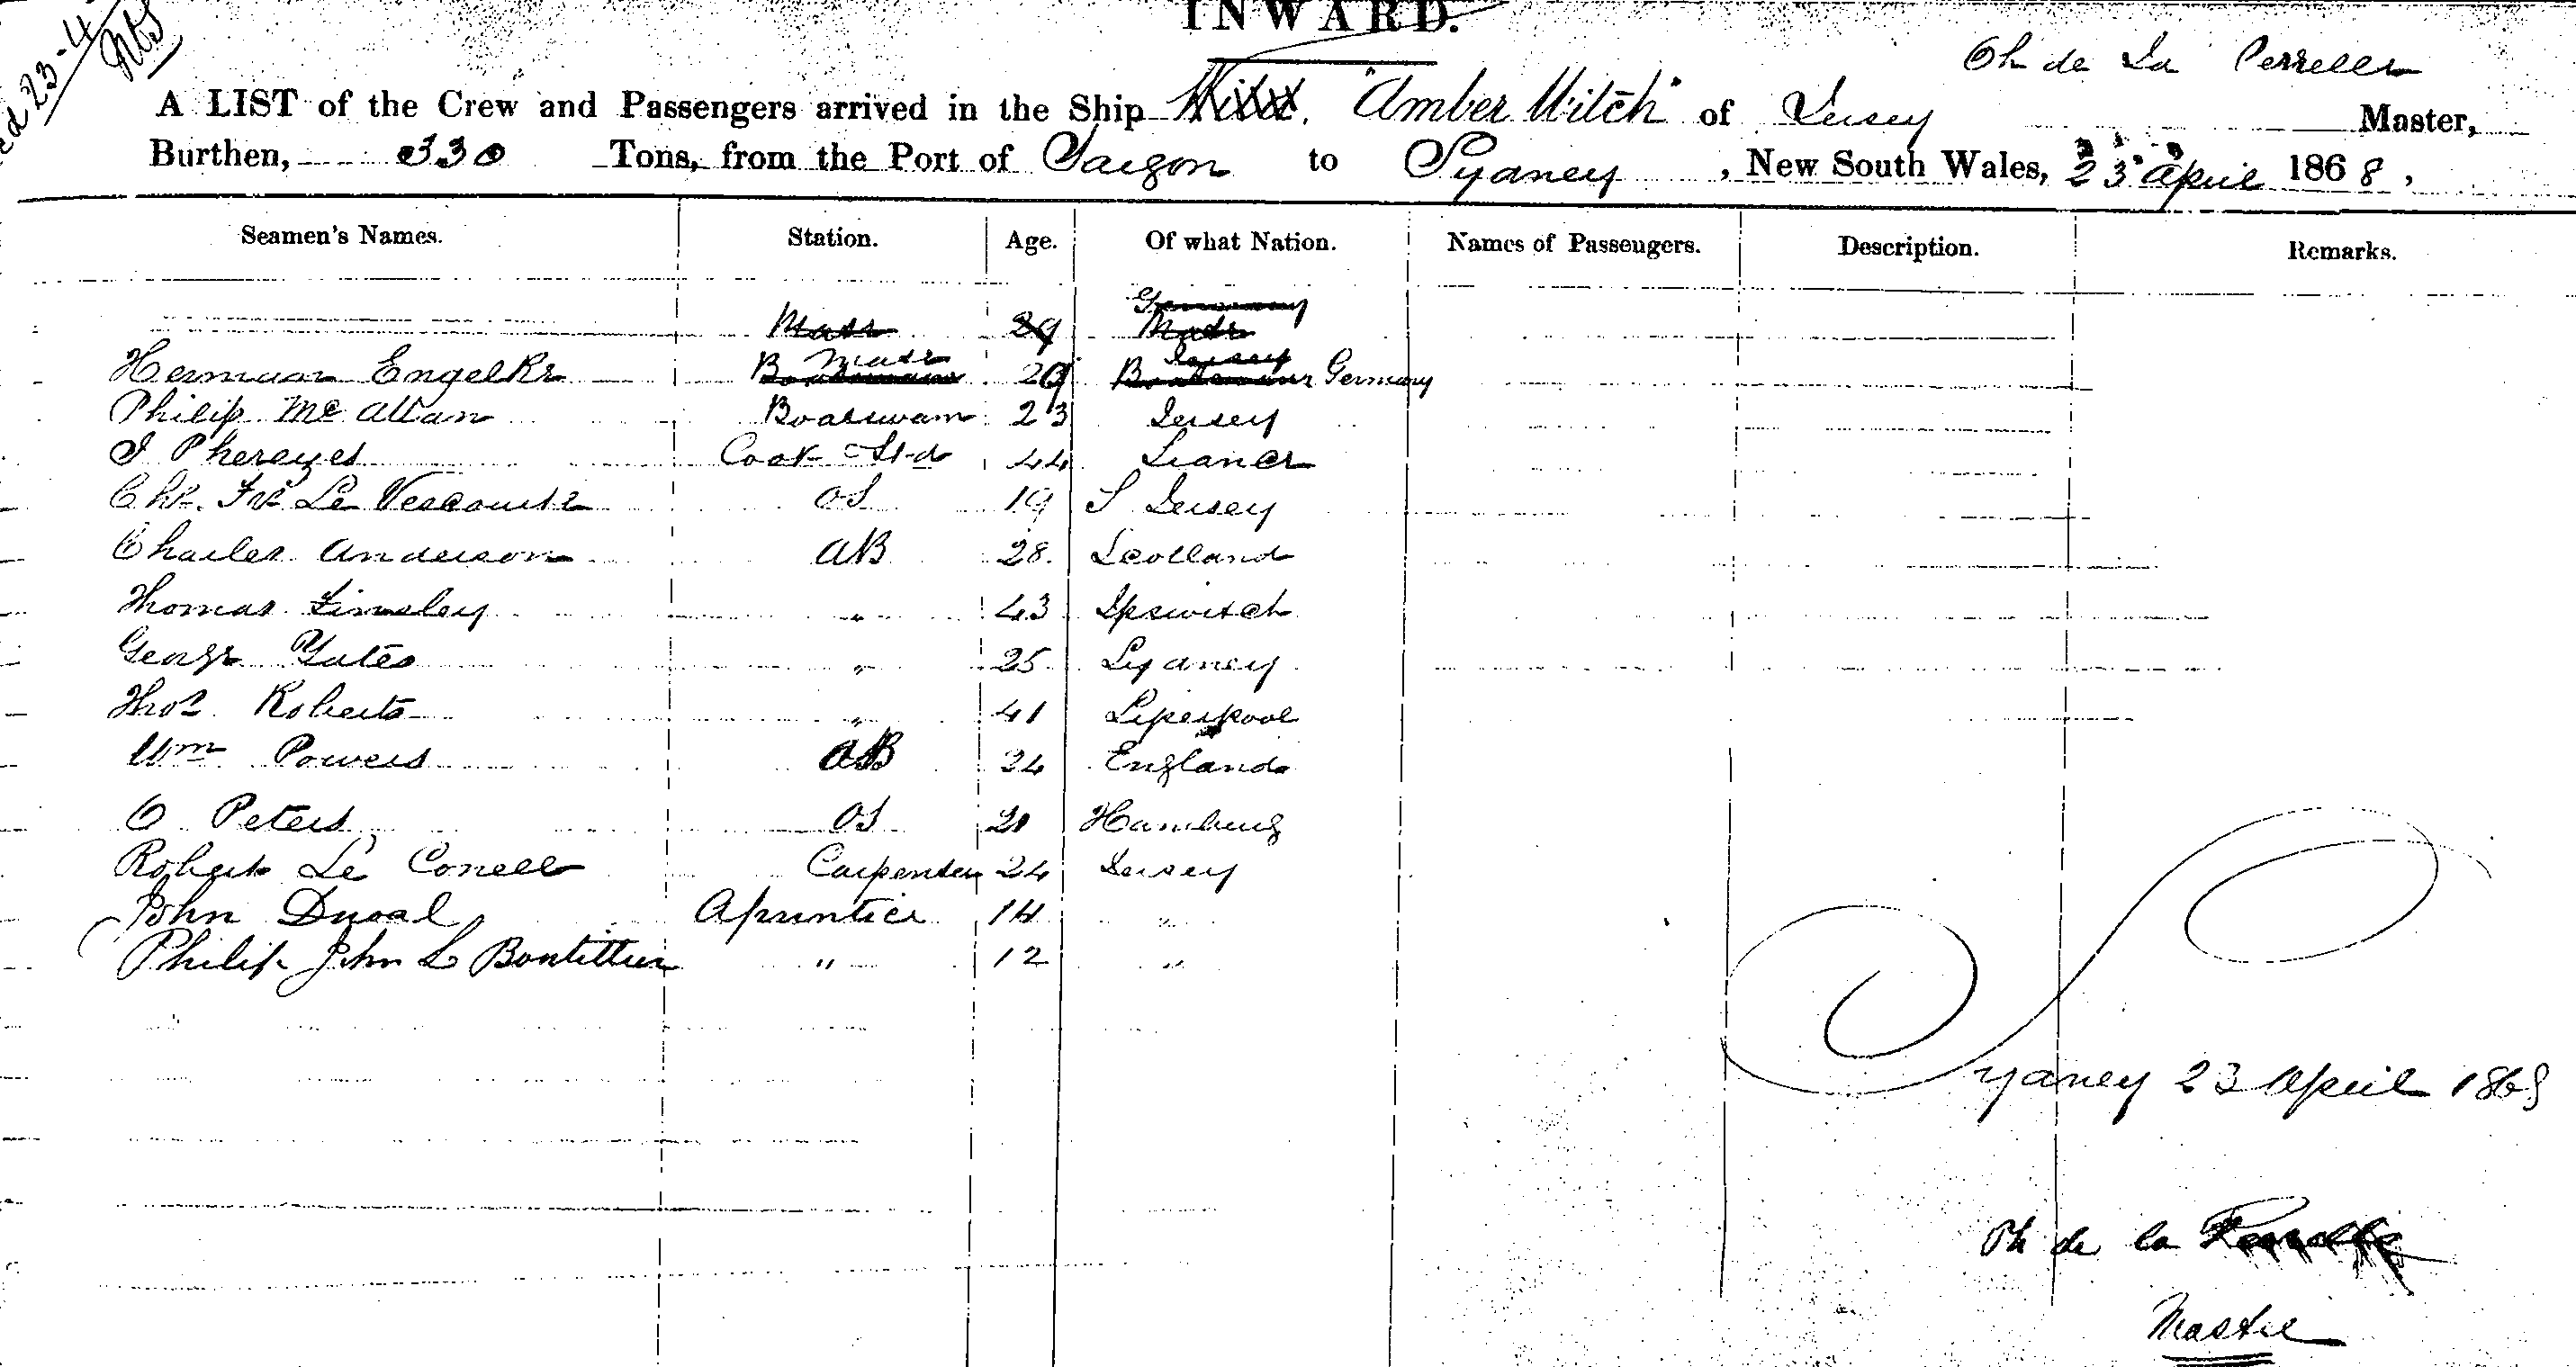 INWARD.
Ch de La Perrelle
A LIST of the Crew and Passengers arrived in the Ship "Amber Witch" of Jersey Master,
Burthen, 330 Tons, from the Port of Saigon to Sydney, New South Wales, 23 April 1868,
Seamen's Names. Station. Age. Of what Nation. Names of Passengers. Description. Remarks.
Germany
Mate 29 Mate
Mate Jersey
Herman Engelke Boatswain 29 Boatswain Germany
Philip Mc Allan Boatswain 23 Jersey
J Pherezes Cook Std 44 France
Chs. Frs Le Vescounte OS 19 S Jersey
Charles Anderson AB 28 Scotland
Thomas Linsley " 43 Ipswitch
George Yates " 25 Sydney
Thos Roberts " 41 Liperpool
Wm Powers AB 24 England
O Peters OS 21 Hamburg
Robert Le Cornell Carpenter 24 Jersey
John Duval Aprintice 14 "
Philip John L Bontillier " 12 "
Sydney 23 April 1868
Ph de la Perrelle
Master